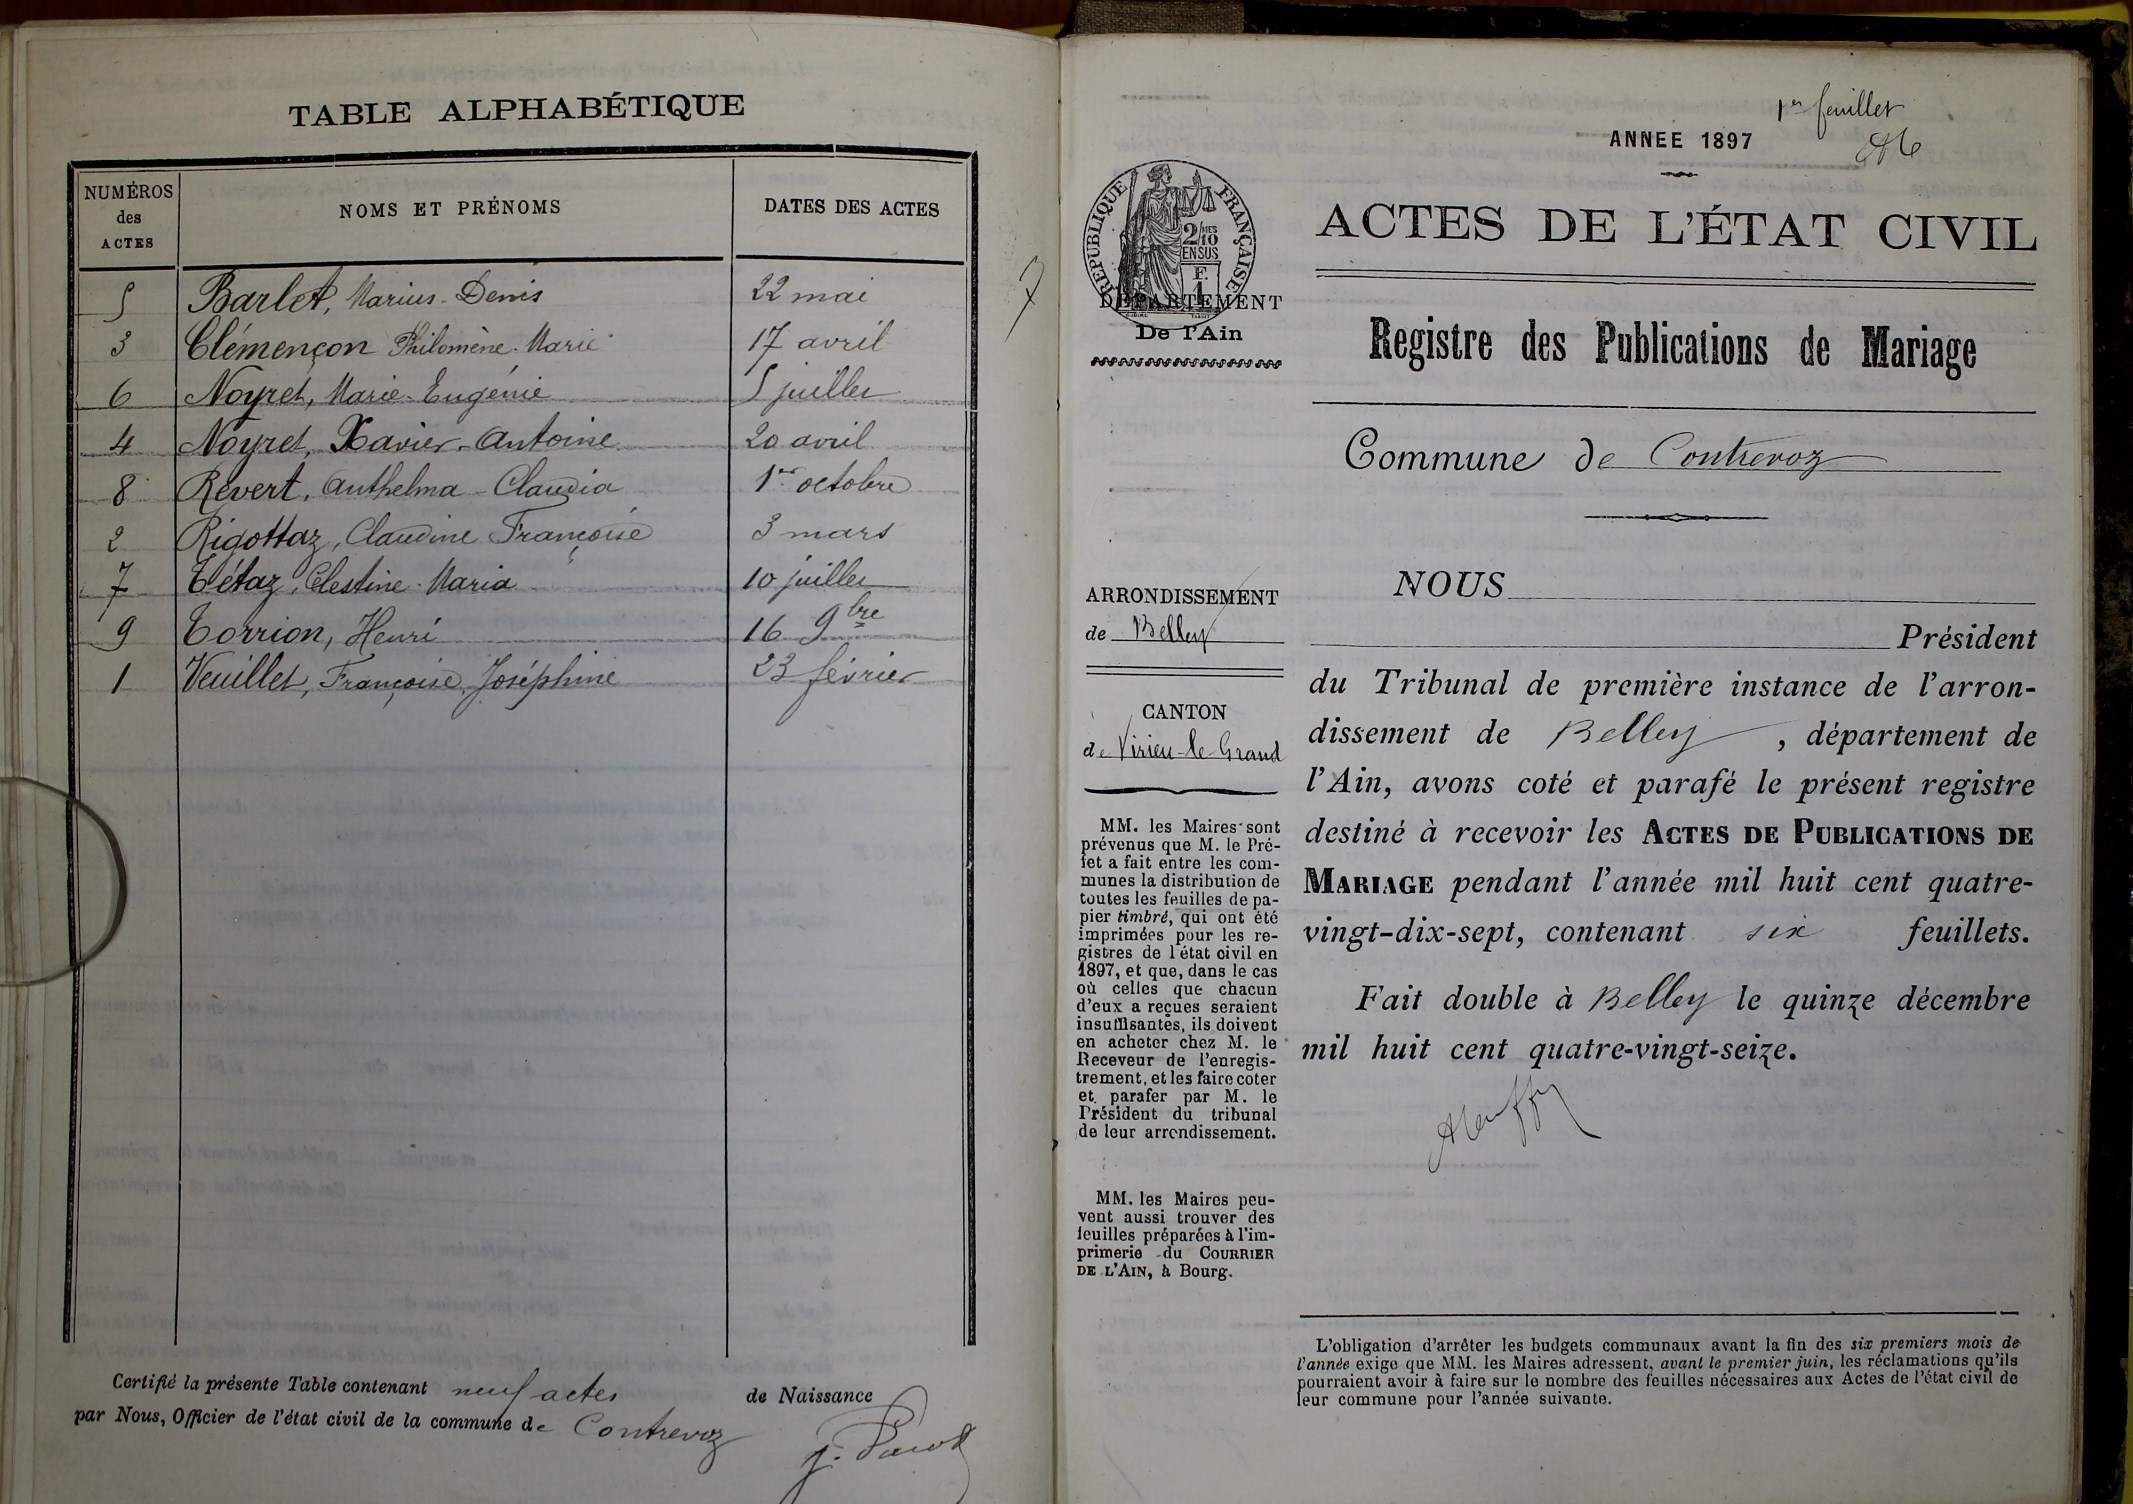 TABLE ALPHABÉTIQUE
NUMÉROS des ACTES NOMS ET PRÉNOMS DATES DES ACTES
5 Barlet, Marius-Denis 22 mai
3 Clémençon Philomène-Marie 17 avril
6 Noyret, Marie-Eugénie 5 juillet
4 Noyret, Xavier-Antoine 20 avril
8 Revert, Anthelma-Claudia 1er octobre
2 Rigottaz, Claudine Françoise 3 mars
7 Tétaz, Célestine-Maria 10 juillet
9 Torrion, Henri 16 9bre
1 Veuillet, Françoise Joséphine 23 février
Certifié la présente Table contenant neuf actes de Naissance
par Nous, Officier de l'état civil de la commune de Contrevoz
7
1er feuillet
ANNEE 1897
RÉPUBLIQUE FRANÇAISE
2/10MES
EN SUS
F.
1
DÉPARTEMENT
De l'Ain
ACTES DE L'ÉTAT CIVIL
Registre des Publications de Mariage
Commune de Contrevoz
ARRONDISSEMENT
de Belley
CANTON
de Virieu-le-Grand
MM. les Maires sont
prévenus que M. le Pré-
fet a fait entre les com-
munes la distribution de
toutes les feuilles de pa-
pier timbré, qui ont été
imprimées pour les re-
gistres de l'état civil en
1897, et que, dans le cas
où celles que chacun
d'eux a reçues seraient
insuffisantes, ils doivent
en acheter chez M. le
Receveur de l'enregis-
trement, et les faire coter
et parafer par M. le
Président du tribunal
de leur arrondissement.
MM. les Maires peu-
vent aussi trouver des
feuilles préparées à l'im-
primerie du COURRIER
DE L'AIN, à Bourg.
NOUS
Président
du Tribunal de première instance de l'arron-
dissement de Belley, département de
l'Ain, avons coté et parafé le présent registre
destiné à recevoir les ACTES DE PUBLICATIONS DE
MARIAGE pendant l'année mil huit cent quatre-
vingt-dix-sept, contenant six feuillets.
Fait double à Belley le quinze décembre
mil huit cent quatre-vingt-seize.
L'obligation d'arrêter les budgets communaux avant la fin des six premiers mois de
l'année exige que MM. les Maires adressent, avant le premier juin, les réclamations qu'ils
pourraient avoir à faire sur le nombre des feuilles nécessaires aux Actes de l'état civil de
leur commune pour l'année suivante.